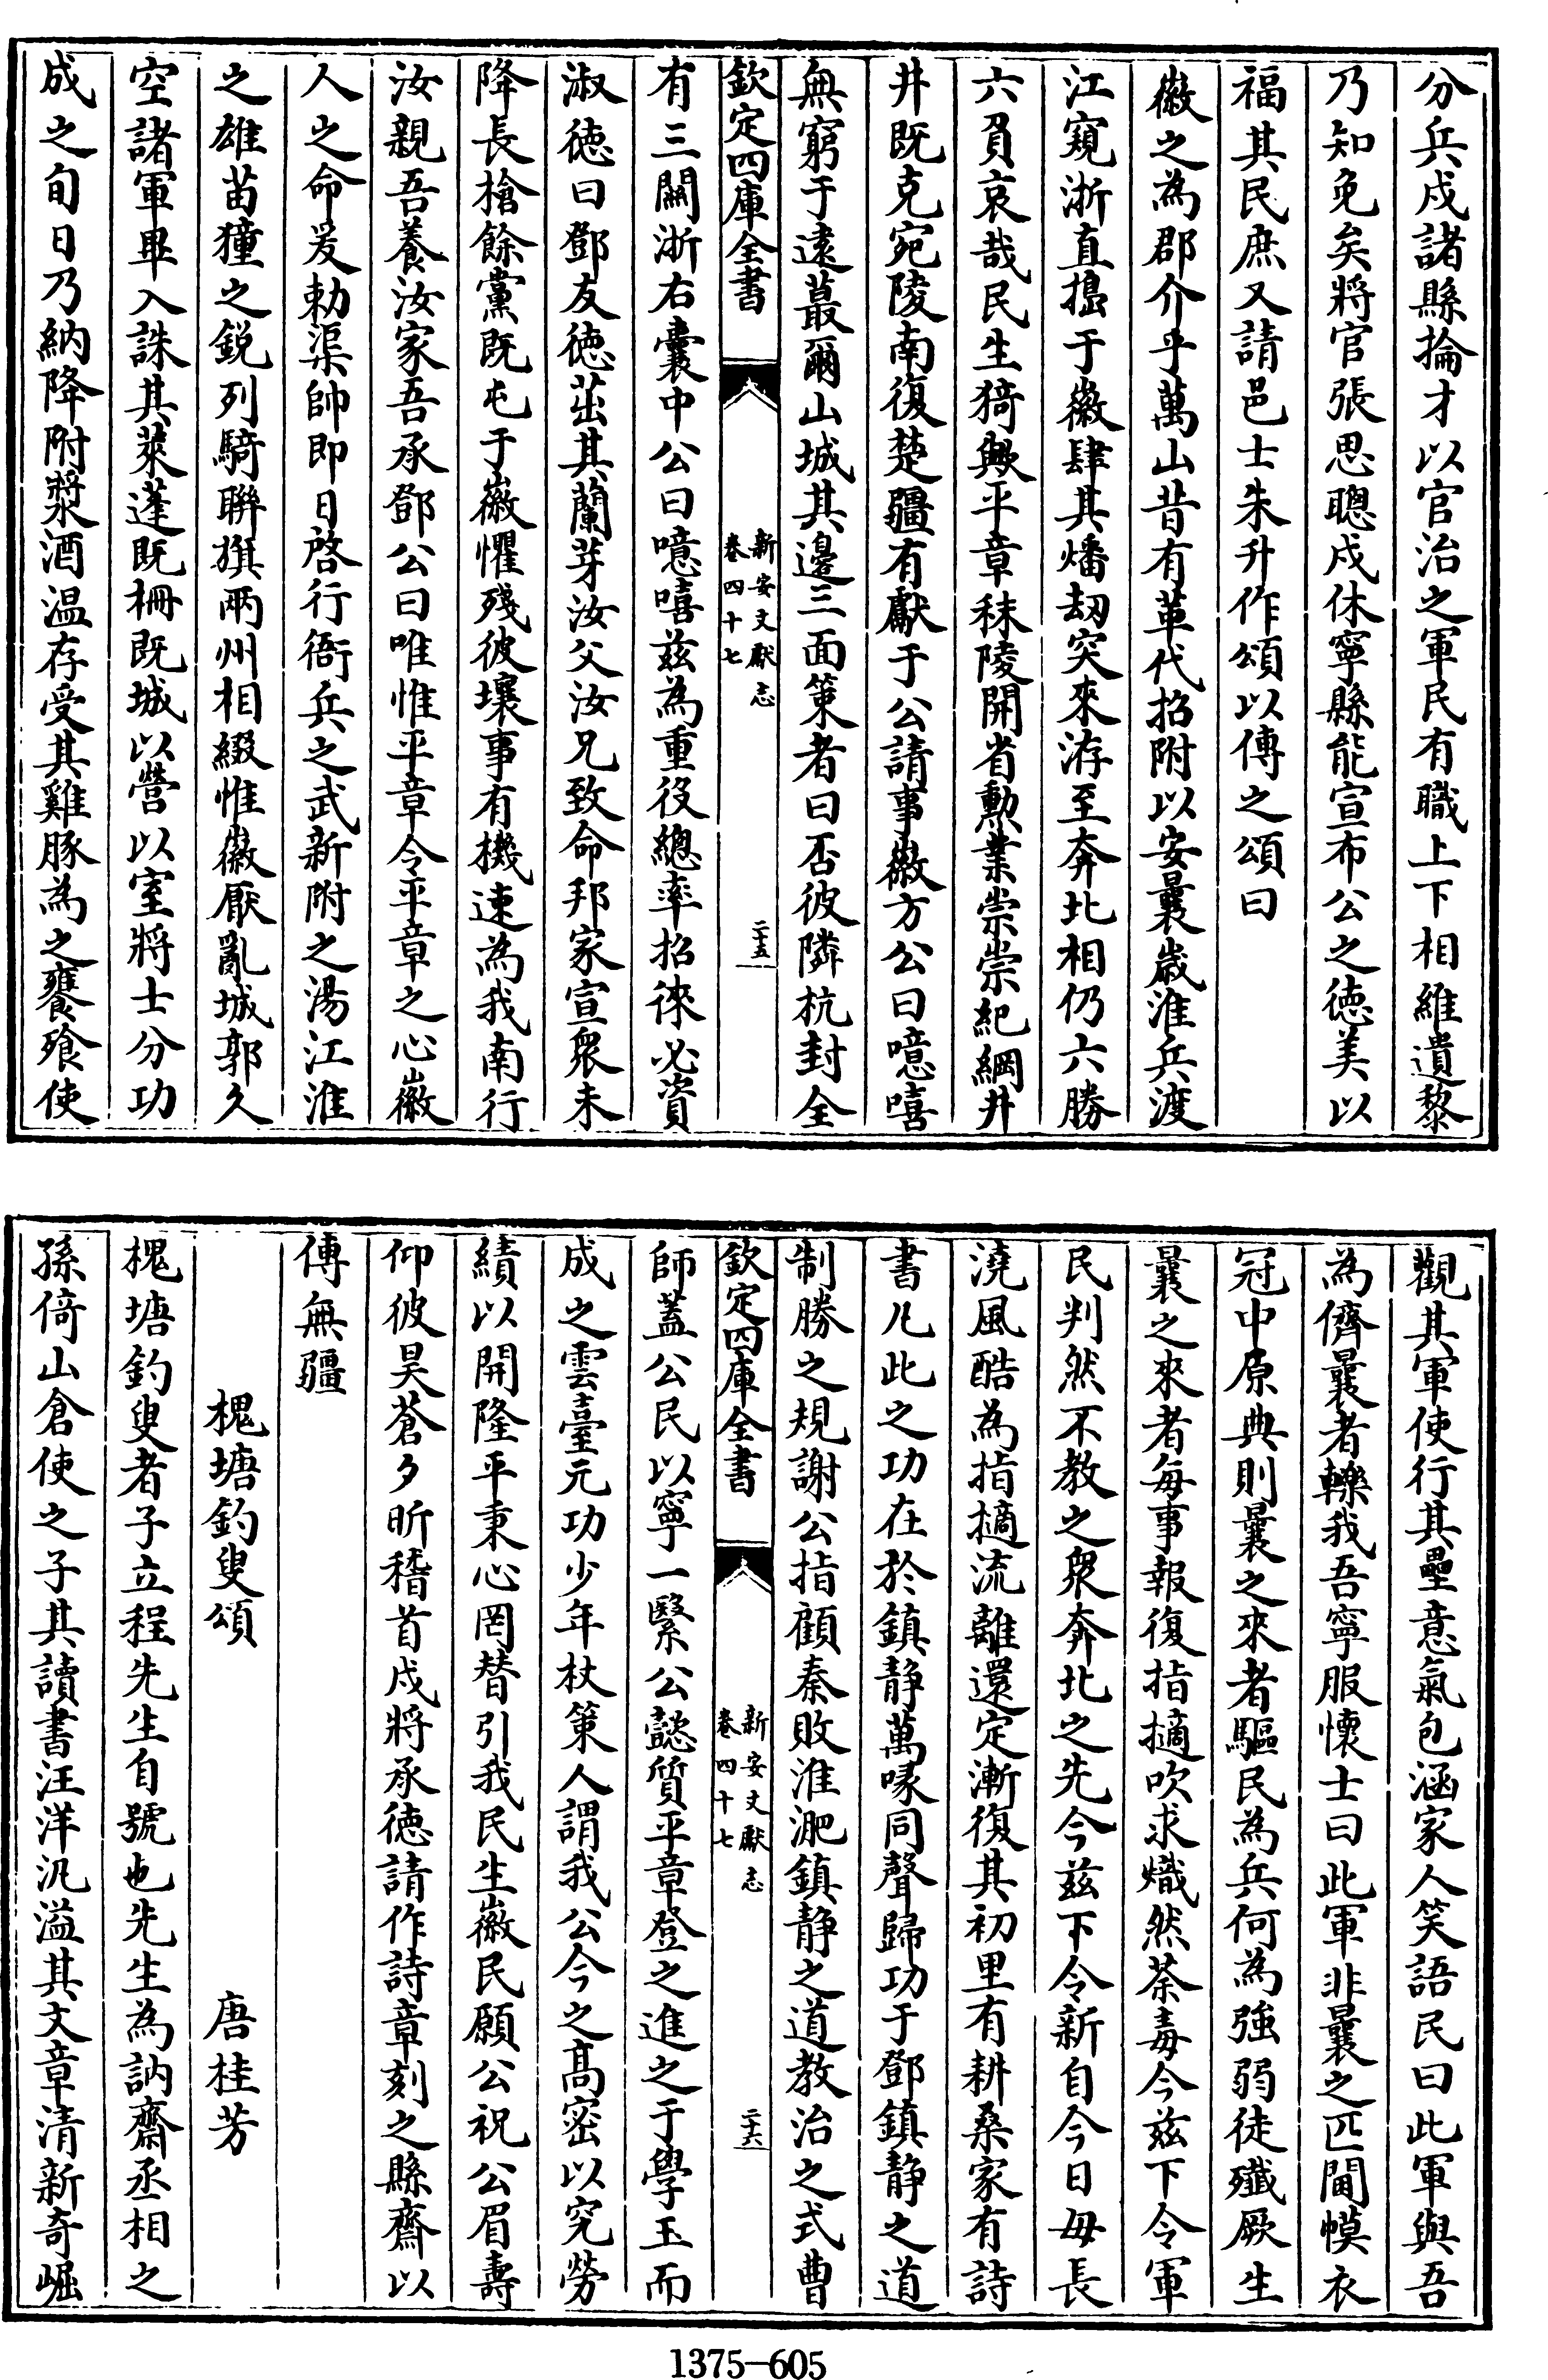 分兵戍諸縣掄才以官治之軍民有職上下相維遺黎
乃知免矣將官張思聰戍休寧縣能宣布公之徳美以
福其民庶又請邑士朱升作頌以傳之頌曰
徽之為郡介乎萬山昔有革代招附以安曩歳淮兵渡
江窺浙直擣于徽肆其燔刼突來洊至奔北相仍六勝
六負哀哉民生猗歟平章秣陵開省勲業崇崇紀綱井
井既克宛陵南復楚疆有獻于公請事徽方公曰噫嘻
無窮于逺蕞爾山城其邊三面策者曰否彼隣杭封全
欽定四庫全書
新安文獻志
卷四十七
二十五
有三關浙右囊中公曰噫嘻兹為重役總率招徠必資
淑徳曰鄧友徳茁其蘭芽汝父汝兄致命邦家宣衆未
降長槍餘黨既屯于徽懼殘彼壤事有機速為我南行
汝親吾養汝家吾承鄧公曰唯惟平章令平章之心徽
人之命爰勅渠帥即日啓行衙兵之武新附之湯江淮
之雄苗獞之鋭列騎聨旗兩州相綴惟徽厭亂城郭久
空諸軍畢入誅其萊蓬既柵既城以營以室將士分功
成之旬日乃納降附漿酒温存受其雞豚為之饔飱使
觀其軍使行其壘意氣包涵家人笑語民曰此軍與吾
為儕曩者轢我吾寧服懐士曰此軍非曩之匹閫幙衣
冠中原典則曩之來者驅民為兵何為強弱徒殲厥生
曩之來者每事報復指擿吹求熾然荼毒今兹下令軍
民判然不教之衆奔北之先今兹下令新自今日毋長
澆風酷為指擿流離還定漸復其初里有耕桑家有詩
書凡此之功在於鎮静萬喙同聲歸功于鄧鎮静之道
制勝之規謝公指顧秦敗淮淝鎮静之道教治之式曹
欽定四庫全書
新安文獻志
卷四十七
二十六
師蓋公民以寧一緊公懿質平章登之進之于學玉而
成之雲臺元功少年杖策人謂我公今之髙宻以究勞
績以開隆平秉心罔替引我民生徽民願公祝公眉壽
仰彼昊蒼夕昕稽首戍將承徳請作詩章刻之縣齋以
傳無疆
槐塘釣叟頌　唐桂芳
槐塘釣叟者子立程先生自號也先生為訥齋丞相之
孫倚山倉使之子其讀書汪洋汎溢其文章清新奇崛
1375-605